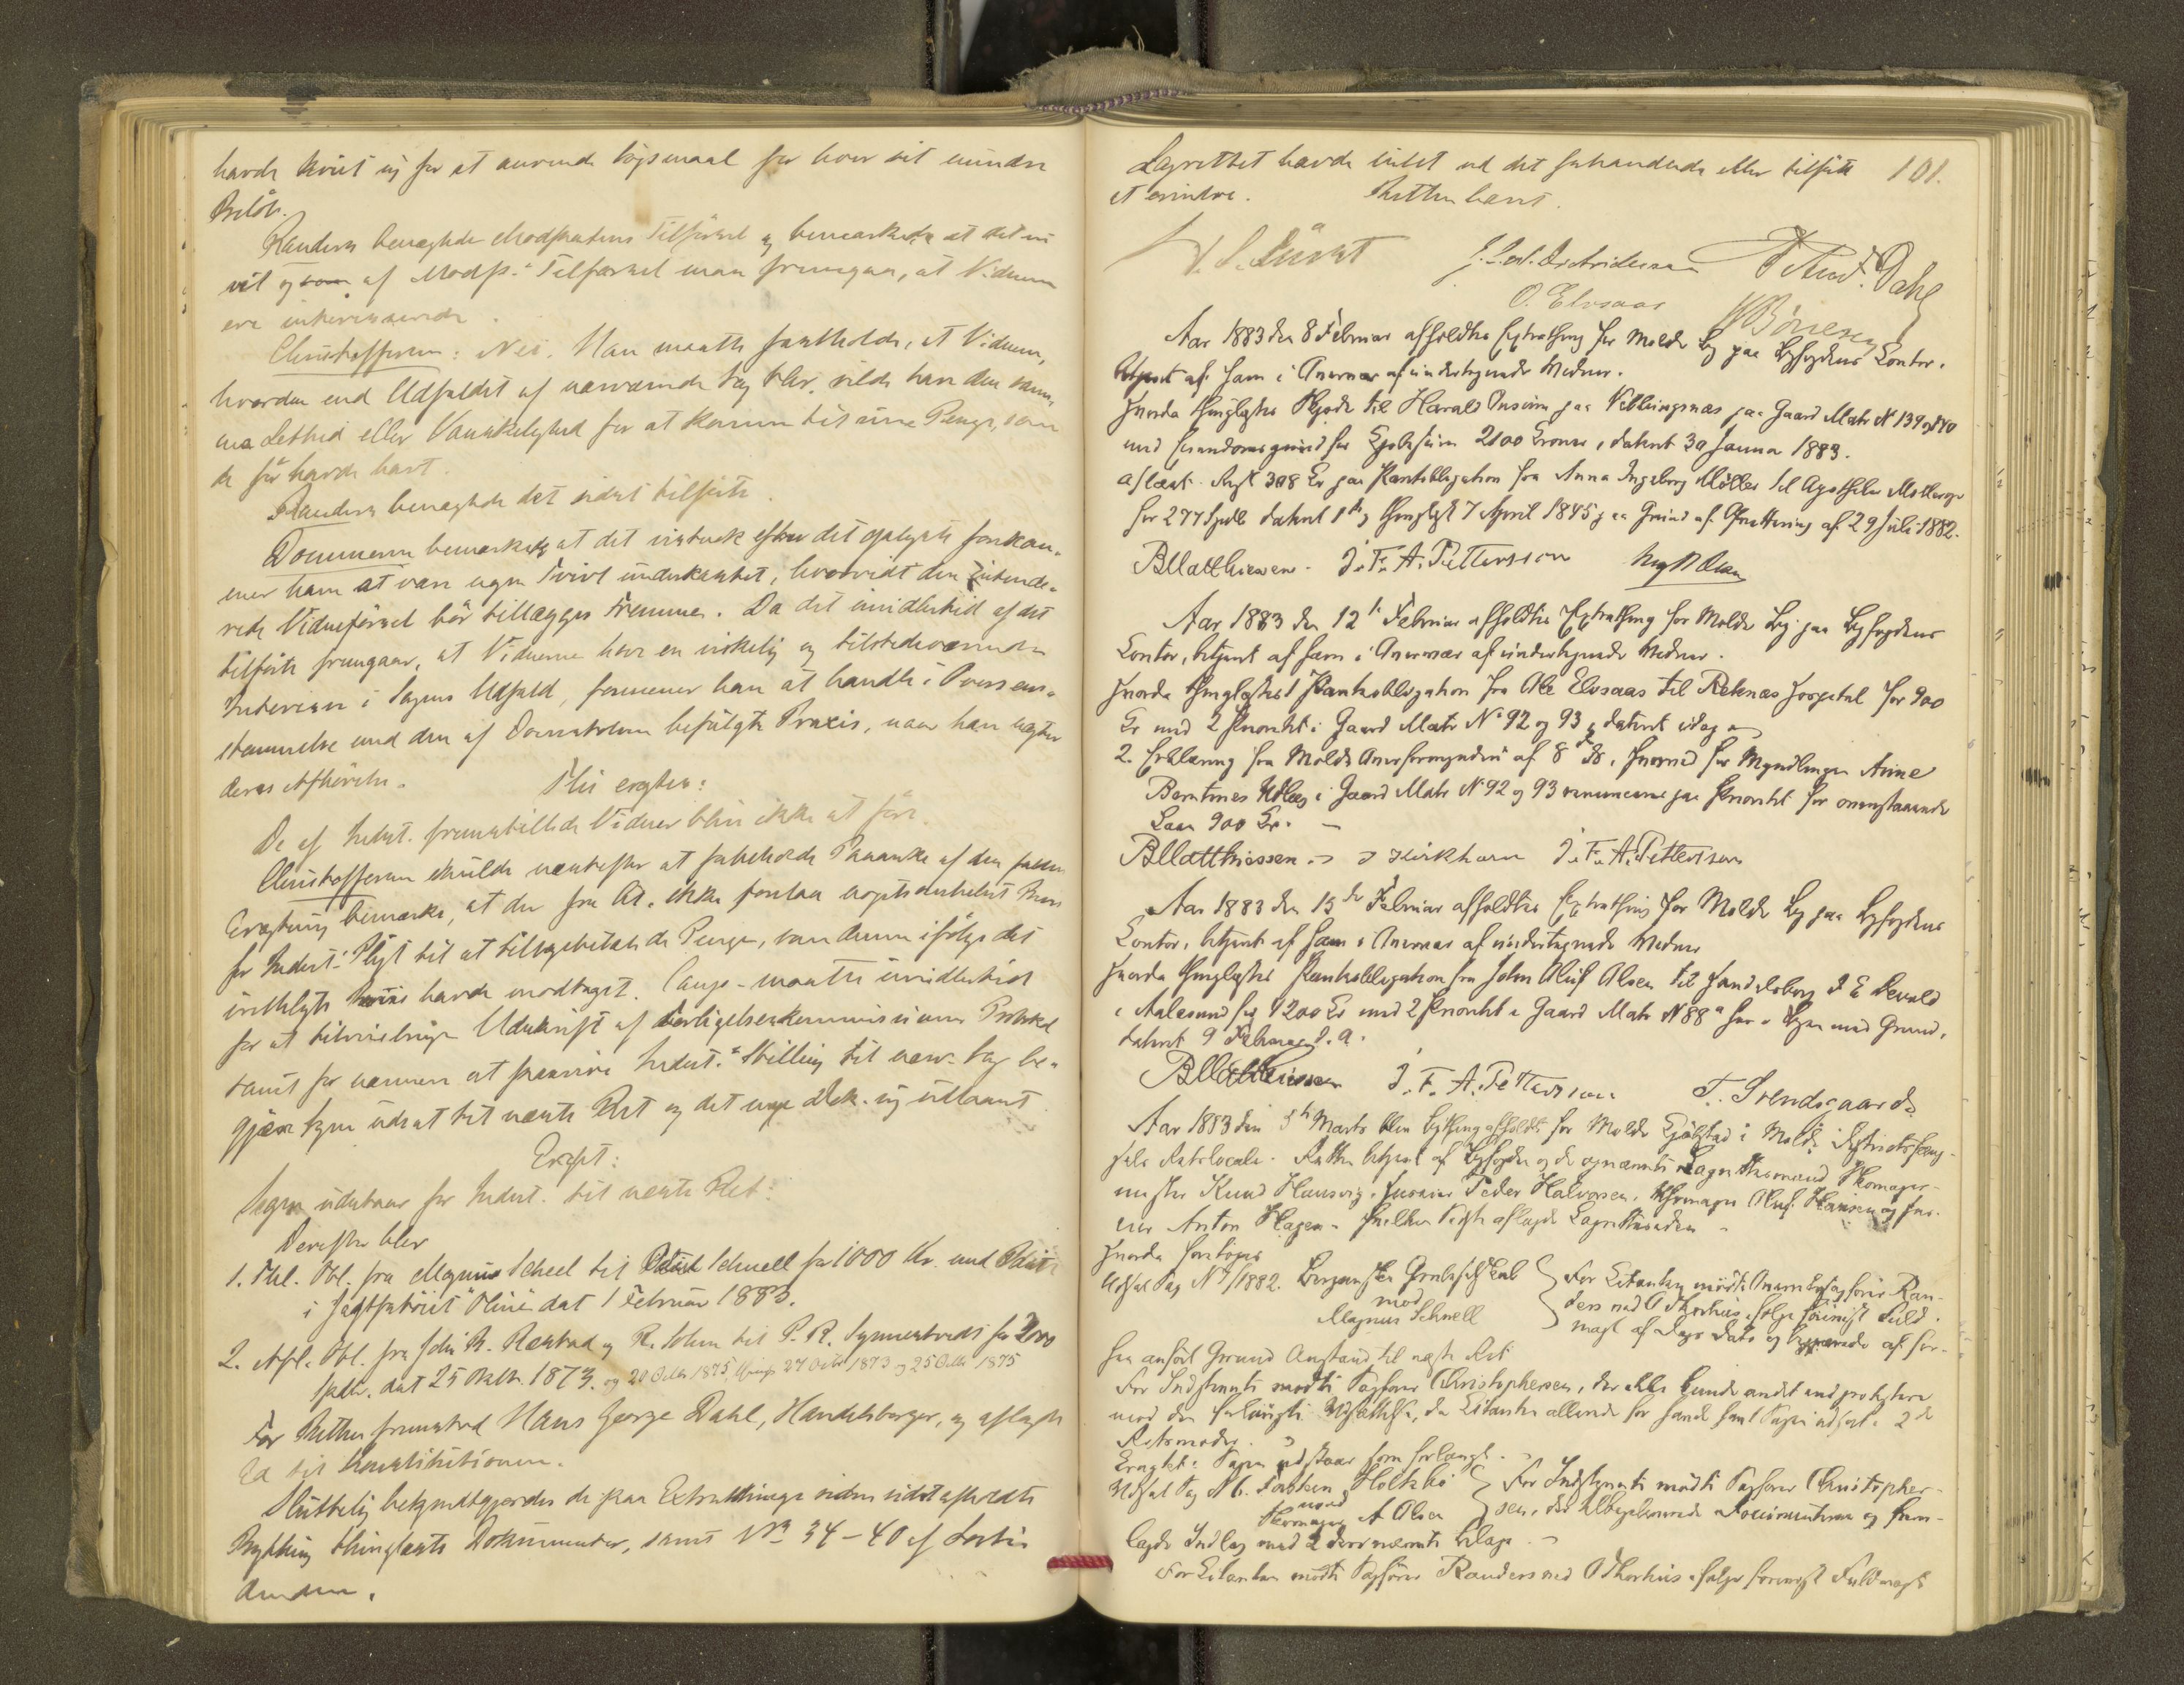 havde kviet sig for at anvende Søgsmaal for hver sit mindre
Beløb.
Randers benægtede Modpartens Tilførsel og bemærkede at det
vil og af Modp.s Tilførsel maa fremgaa, at Vidnerne
ere interesserede.
Christoffersen: Nei. Man maatte fastholde, at Vidnerne,
hvordan end Udfaldet af nærværende Sag blev, vilde have den sam-
me Lethed eller Vanskelighed for at komme til sine Penge, som
de før havde havt.
Randers benægtede det sidst tilførte.
Dommeren bemærkede at det vistnok efter det oplyste forekom-
mer ham at være ugen Tvivl underkastet, hvorvidt den intende-
rede Vidneførsel bør tillægges Fremme. Da det imidlertid af det
tilførte fremgaar, at Vidnerne have en virkelig og tilstedeværende
Interesse i Sagens Udfald, formener han at handle i Overens-
stemmelse med den af Domstolene befulgte Praxis, naar han nægter
deres Afhørelse.
Thi eragtes:
De af Indst. fremstillede Vidner blive ikke at føre.
Christoffersen skulde næstefter at forbeholde Paaanke af den faldne
Eragtning bemærke, at der fra Ct. ikke forelaa noget Bevis
for Indst.s Pligt til at tilbagebetale de Penge, som denne ifølge det
indhentede havde modtaget. Comp. maatte imidlertid
for at tilveiebringe Udskrift af Forligelseskommissionens Protokol
samt for nærmere at præcisere Indst.s Stilling til nærv. Sag be-
gjære Sagen udsat til næste Ret og det nye Dok. sig udlaant
Eragtet:
Sagen udstaar for Indst. til næste Ret.
Derefter blev
1. Thl. Obl. fra Magnus Schnell til Schnell for 1000 Kr. med Pant
i Jagtfartøiet "Oline" dat 1 Februar 1883.
2. Afl. Obl. fra John R. Røstad og R. Sohn til P. R. Synnestvedt for 2000
Spdlr. dat 25 Oktbr. 1873. og 20 Octbr 1875, thingl 27 Octbr 1873 og 25 Octbr 1875
For Retten fremstod Hans George Dahl, Handelsborger, og aflagde
Ed til Konstitutionen.
Sluttelig bekjendtgjordes de paa Extrathinge siden sidst afholdte
Bything thinglæste Dokumenter, samt No 34-40 af Lovtidenden.
Lagrettet havde intet ved det forhandlede eller tilførte 101.
at erindre. Retten hævet.
O. Elvsaas Dahl
Aar 1883 den 8 Februar afholdtes Extrathing for Molde By paa Byfogdens Contor,
betjent af ham i Nærvær af undertegnede Vidner.
Hvorda thinglystes Skjøde til Harald Onsum paa Veblungsnæs paa Gaard Matr No 139 og 140
med Eiendomsgrund for Kjøbesum 2100 Kroner, dateret 30 Januar 1883.
Aflæst. Rest 308 Kr paa Pantobligation fra Anna Ingeborg Møller til Apotheker Møllerop
for 277 Spdlr dateret 1ste og thinglyst 7 April 1845 paa Grund af Qvittering af 29 Juli 1882.
B Matthiesen. J. F. A. Pettersson
Aar 1883 den 12te Februar afholdtes Extrathing for Molde By paa Byfogdens
Contor, betjent af ham i Nærvær af undertegnede Vidner.
Hvorda thinglystes 1 Pantobligation fra Ole Elvsaas til Reknæs Hospital for 900
Kr med 2 Prioritet i Gaard Matr No 92 og 93, dateret idag
2. Erklæring fra Molde Overformynderi af 8de ds, hvorved for Myndlingen Anne
Berntines Udlæg i Gaard Matr No 92 og 93 renunceres paa Prioritet for ovenstaaende
Laan 900 Kr.
B Matthiessen. J Kirkhorn J. F. A. Pettersson
Aar 1883 den 15de Februar afholdtes Extrathing for Molde By paa Byfogdens
Contor, betjent af ham i Nærvær af undertegnede Vidner
Hvorda thinglystes Pantobligation fra John Oluf Olsen til Handelsborg. J E Devold
i Aalesund for 1200 Kr med 2 Prioritet i Gaard Matr No 88a her i Byen med Grund,
dateret 9 Februar d. A.
B Matthiessen J. F. A. Pettersson T. Svendsgaard
Aar 1883 den 5te Marts blev Bything afholdt for Molde Kjøbstad i Molde Distriktsfæng-
sels Retslocale. Retten betjent af Byfogden og de opnævnte Lagrettesmænd Skomager-
mester Knud Hausvig, Snekker Peder Halvorsen, Uhrmager Oluf Hansen og
Anton Hagen. Hvilke sidste aflagde Lagretteseden
Hvorda foretoges
Udsat Sag No 4/1882. Bergenske Grubeselskab
mod
Magnus Schnell
For Citanten mødte Overretssagfører Ran-
ders ved O Thorhus ifølge forevist Fuld-
magt af Dags Dato og begjærede af for-
hen anført Grund Anstand til næste Ret
For Indstevnte mødte Sagfører Christophersen, der ikke kunde andet end protestere
mod den forlangte Udsættelse, da Citanten allerede har havt Sagen udsat i 2de
Retsmøder.
Eragtet: Sagen udstaar som forlangt.
Udsat Sag No 6. Torsten Holtsbø
mod
Skomager A Olsen
For Indstevnte mødte Sagfører Christopher-
sen, der tilbageleverede Documenterne og frem-
lagde Indlæg med 2 deri nævnte Bilage.
For Citanten mødte Sagfører Randers ved O Thorhus ifølge forevist Fuldmagt